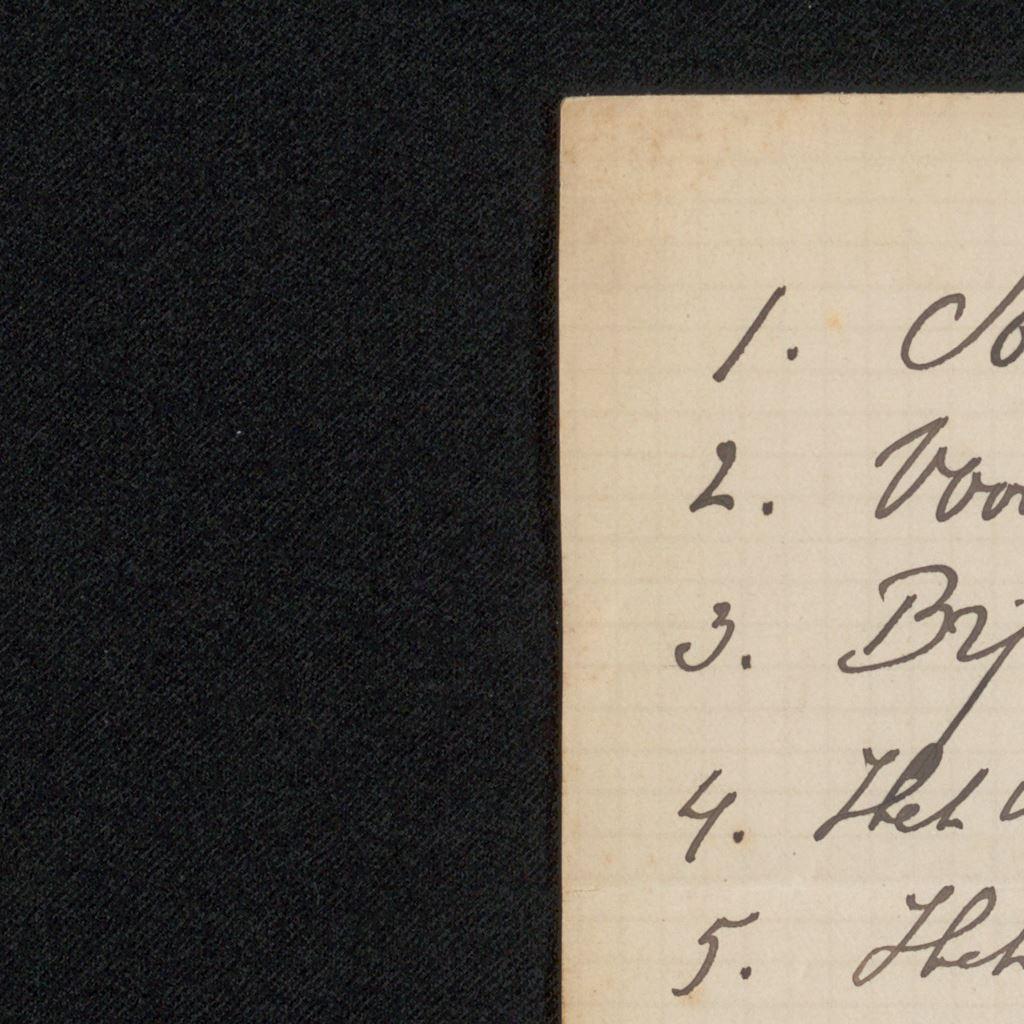 1.
2. Voo
3. Bij
4. Het
5. Het